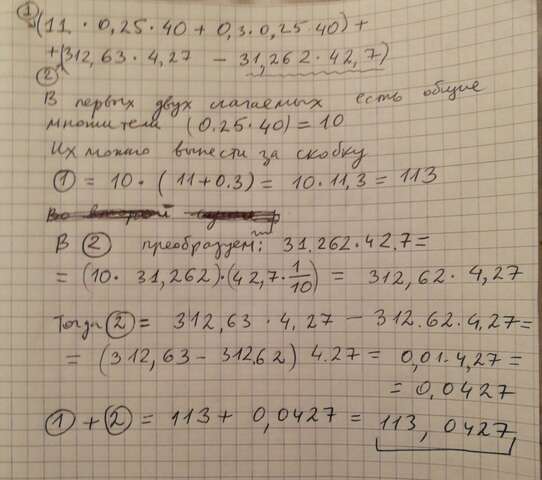 ① (11 · 0,25 · 40 + 0,3 · 0,25 · 40) +
+ (312,63 · 4,27 − 31,262 · 42,7)
②
В первых двух слагаемых есть общие
множители (0.25 · 40) = 10
Их можно вынести за скобку
① = 10 · (11 + 0.3) = 10 · 11,3 = 113
В ② преобразуем: 31.262 · 42,7 =
= (10 · 31,262) · (42,7 · 1/10) = 312,62 · 4,27
Тогда ② = 312,63 · 4,27 − 312.62 · 4,27 =
= (312,63 − 312.62) 4.27 = 0,01 · 4,27 =
= 0,0427
① + ② = 113 + 0,0427 = 113, 0427